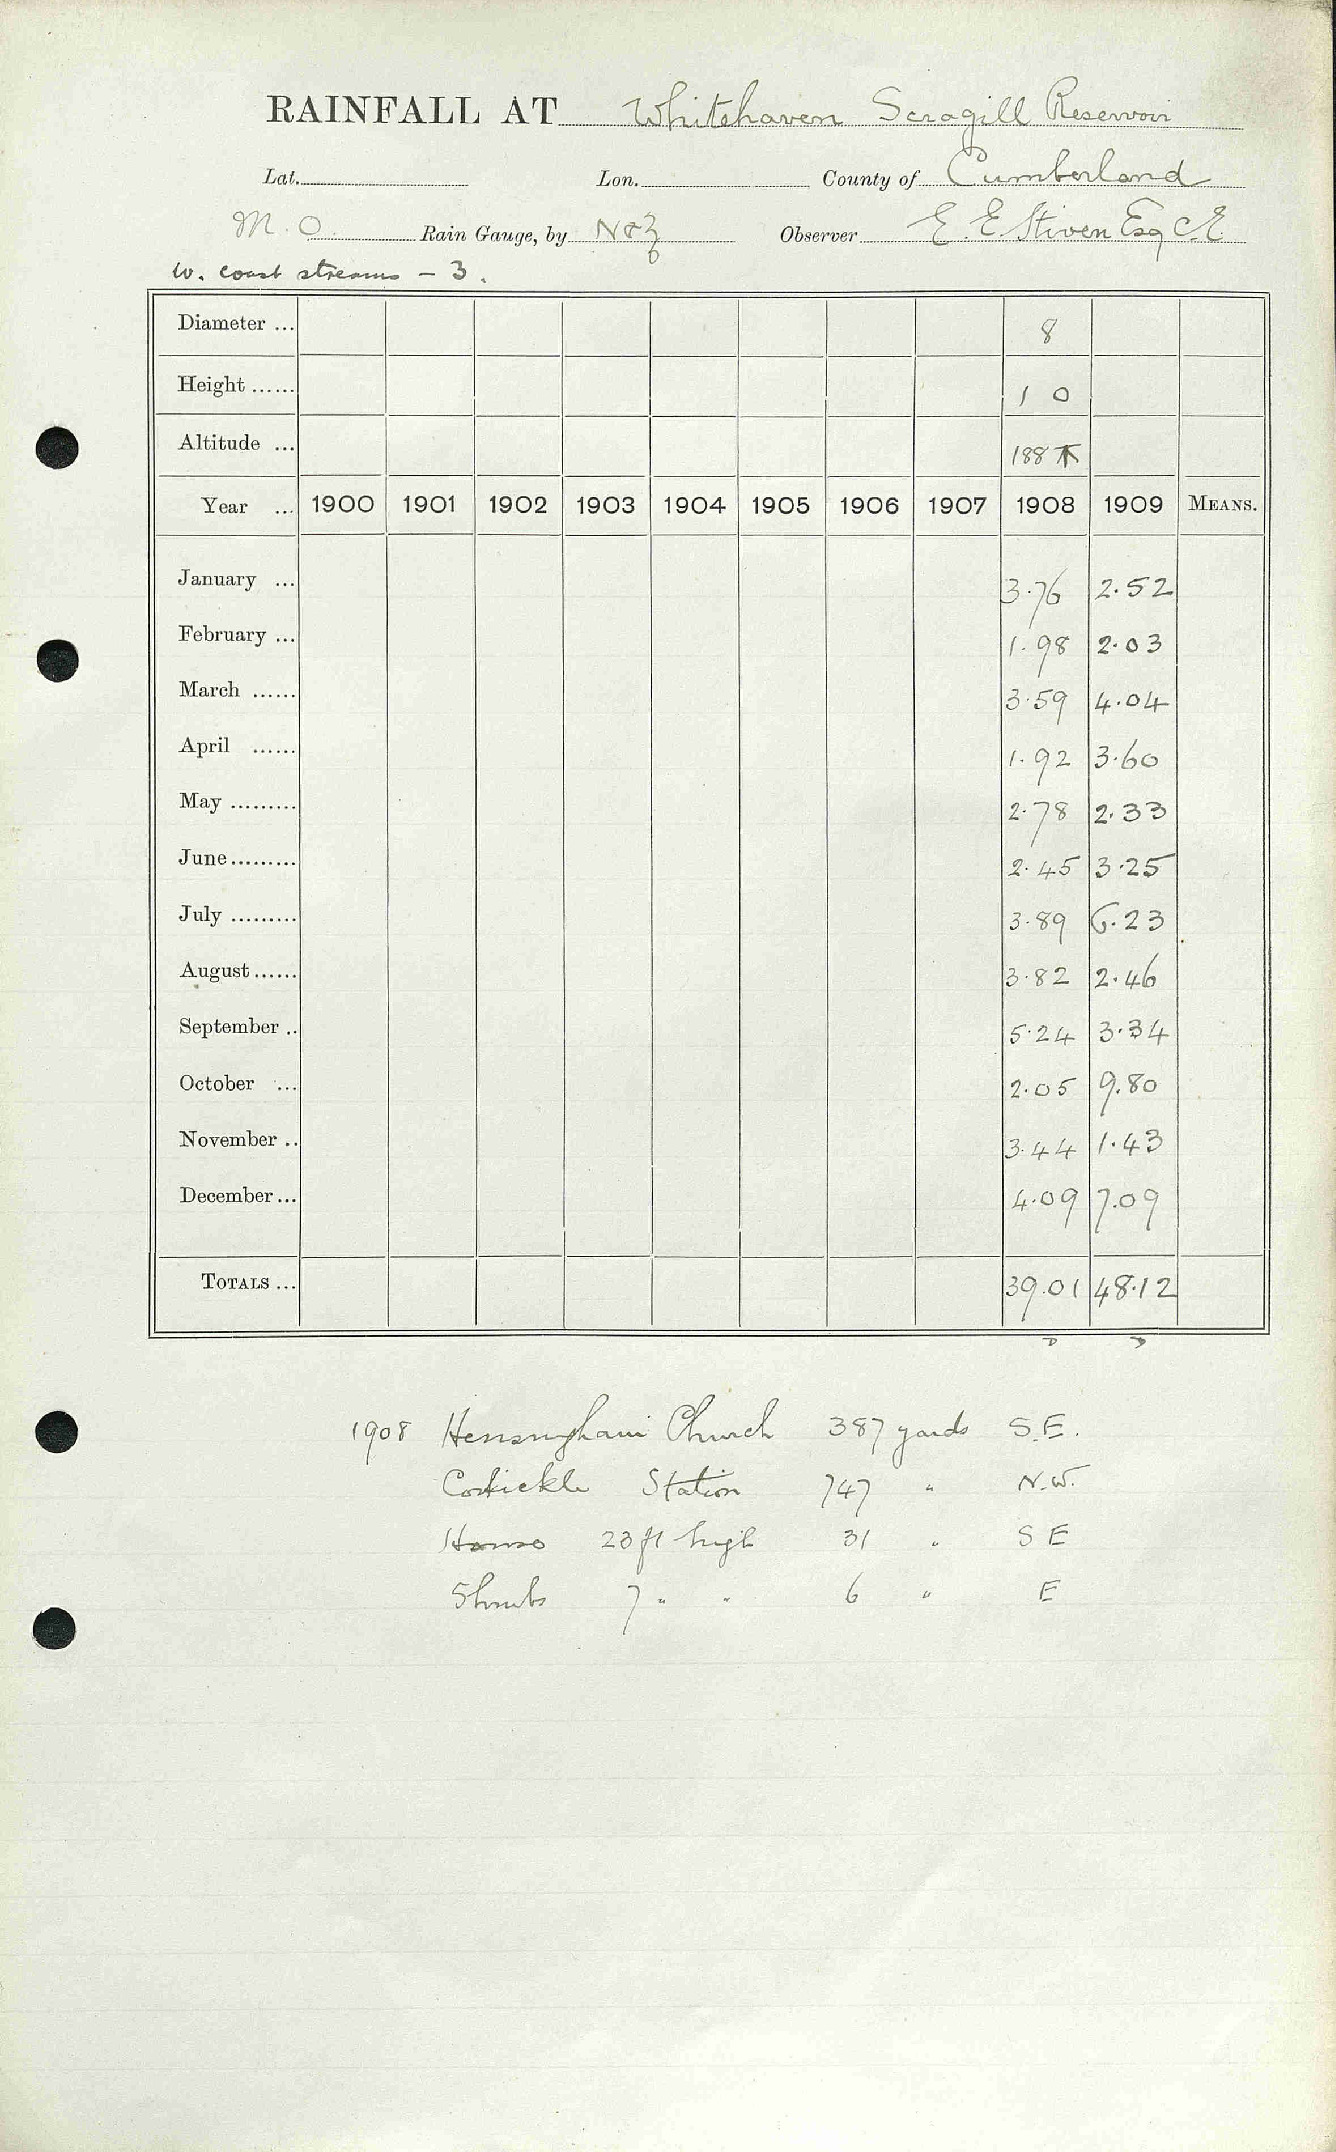 RAINFALL AT Whitehaven Scragill Reservoir
Lat. Lon. County of Cumberland
M.O. Rain Gauge, by N&Z Observer E. E. Stiven Esq C.E
W. coast streams - 3.
Diameter ... 8
Height ...... 1 0
Altitude ... 188
Year ... 1900 1901 1902 1903 1904 1905 1906 1907 1908 1909 MEANS.
January ... 3.76 2.52
February ... 1.98 2.03
March ...... 3.59 4.04
April ...... 1.92 3.60
May ......... 2.78 2.33
June ......... 2.45 3.25
July ......... 3.89 6.23
August ...... 3.82 2.46
September .. 5.24 3.34
October ... 2.05 9.80
November .. 3.44 1.43
December ... 4.09 7.09
TOTALS ... 39.01 48.12
1908 Hensingham Church 387 yards S.E.
Corkickle Station 747 " N.W.
House 23 ft high 31 " S E
Shrubs 7 " " 6 " E